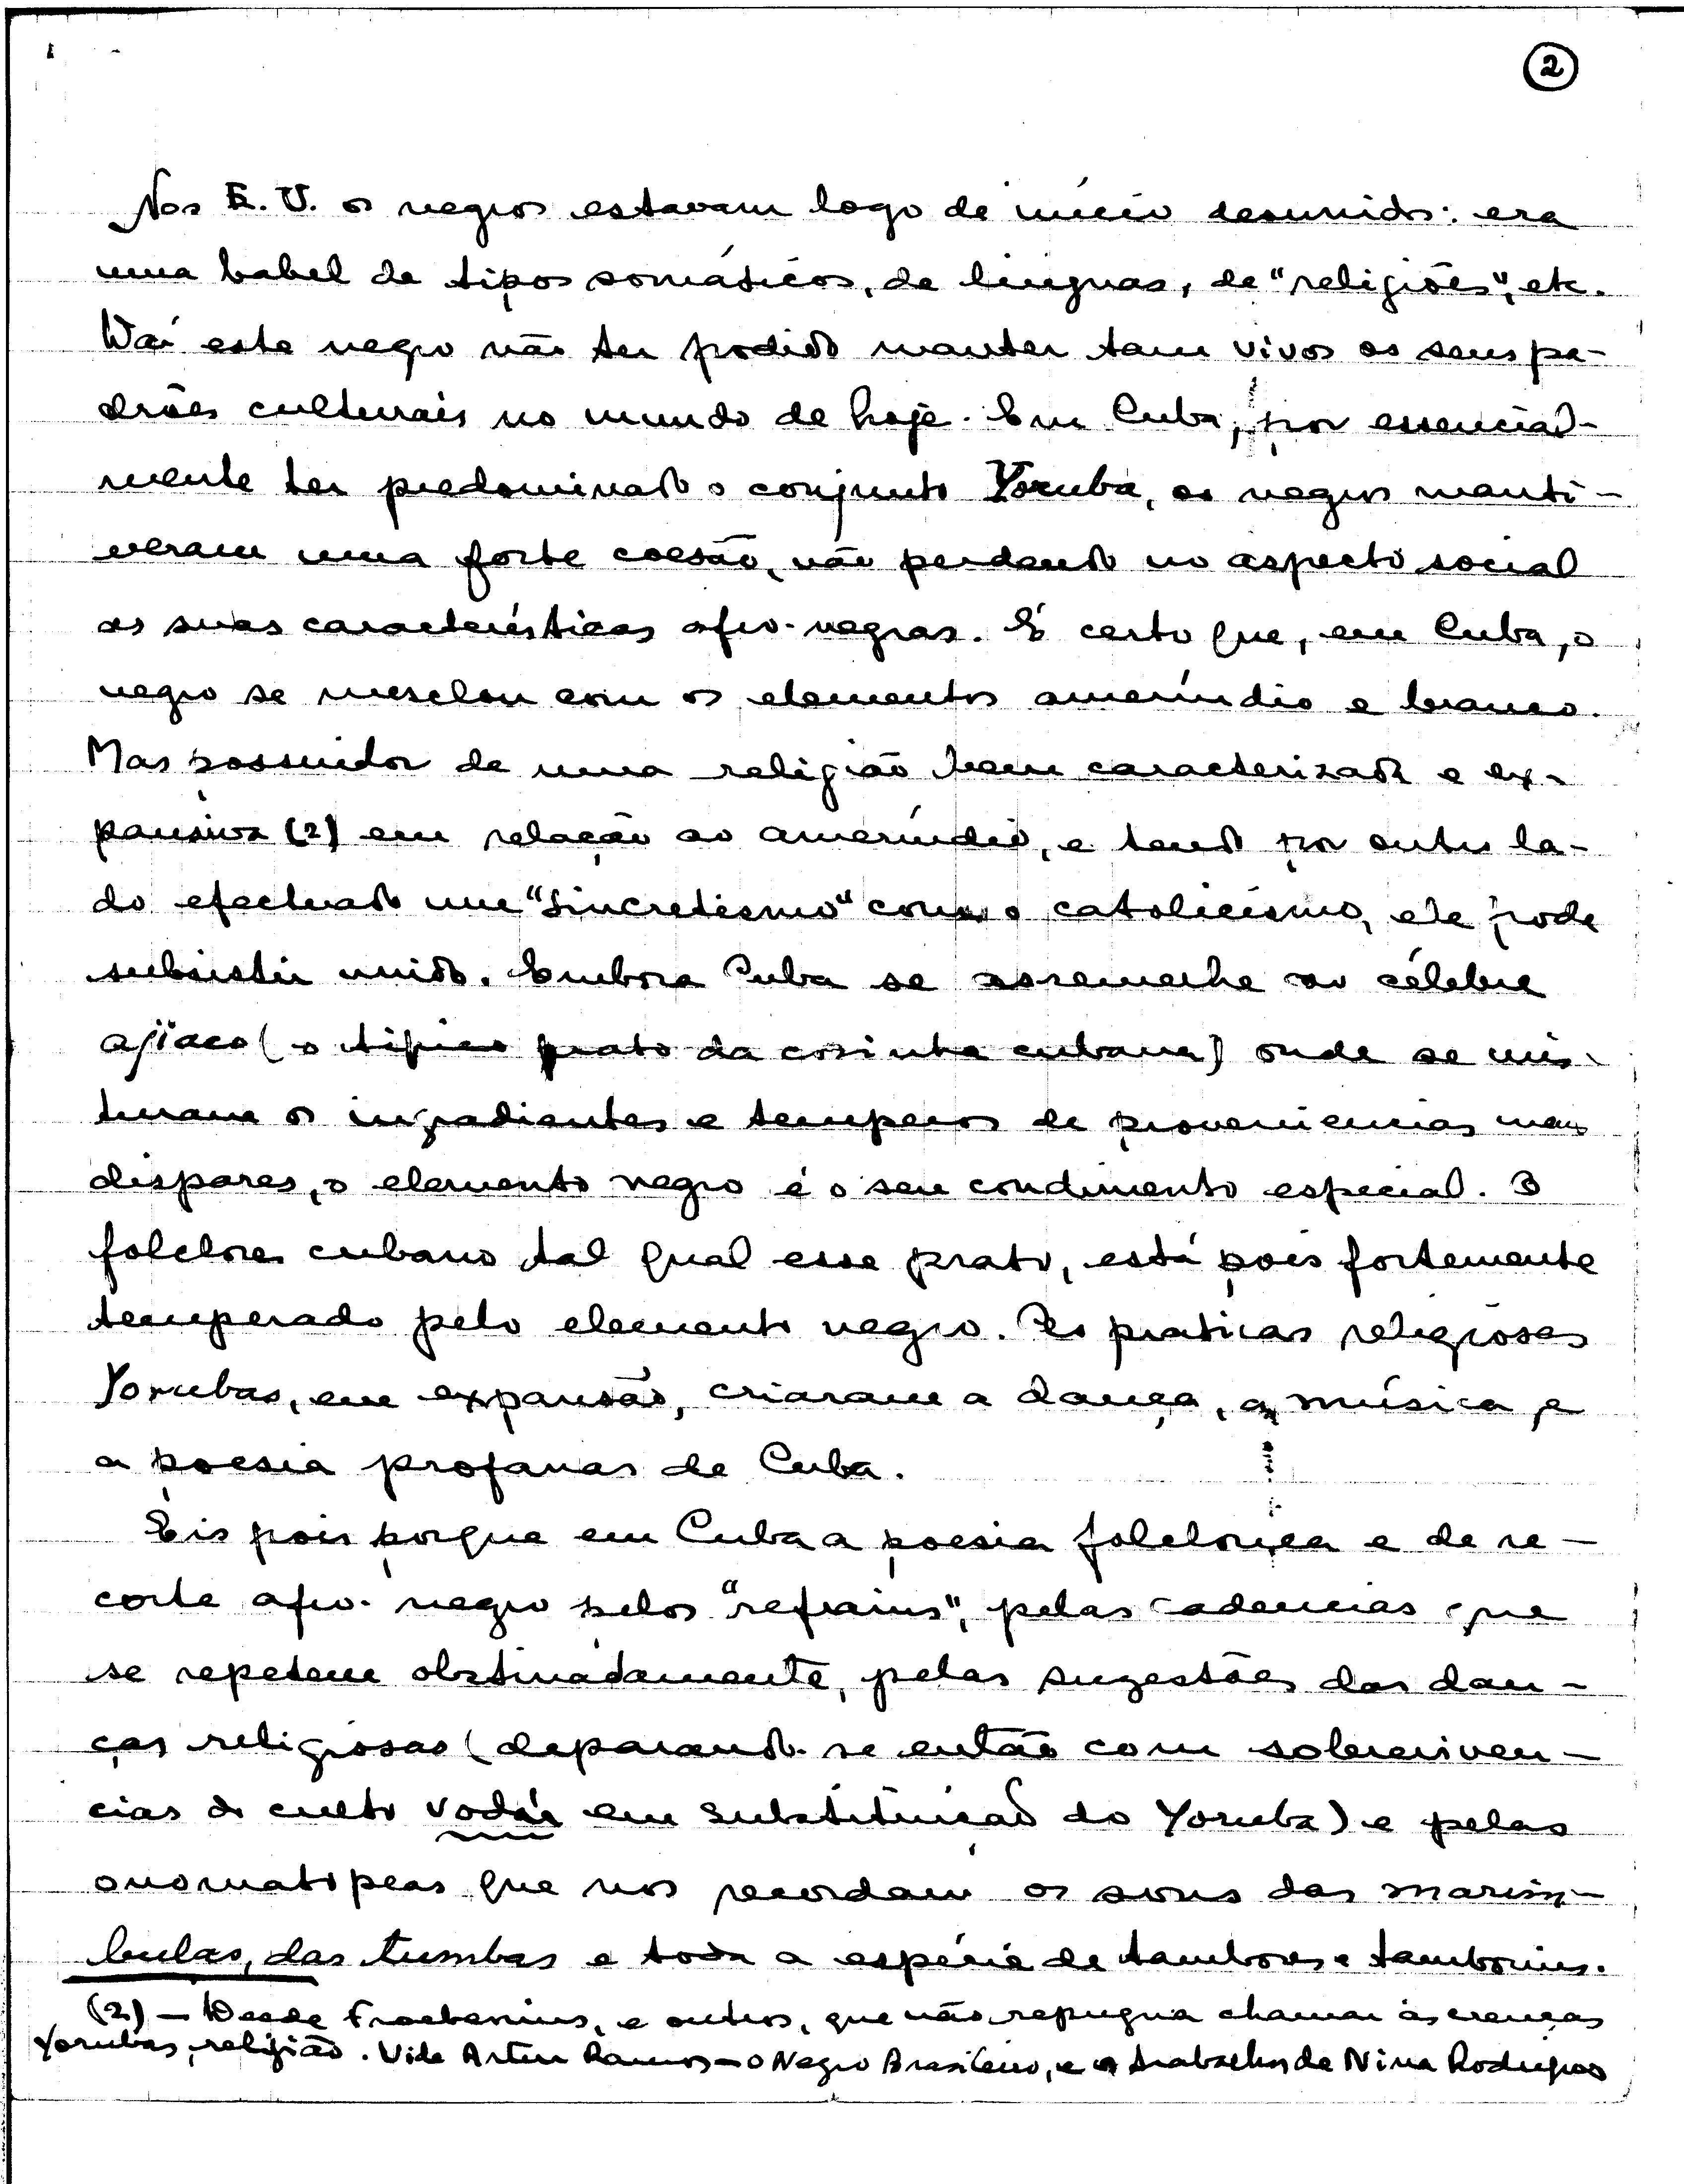 2
Nos E.U. os negros estavam logo de início desunidos: era
uma babel de tipos somáticos, de línguas, de "religiões", etc.
Daí este negro não ter podido manter tam vivos os seus pa-
drões culturais no mundo de hoje. Em Cuba, por essencial-
mente ter predominado o conjunto Yoruba, os negros manti-
veram uma forte coesão, não perdendo no aspecto social
as suas características afro-negras. É certo que, em Cuba, o
negro se mesclou com os elementos ameríndio e branco.
Mas possuidor de uma religião bem caracterizada e ex-
pansiva (2) em relação ao ameríndio, e tendo por outro la-
do efectuado um "sincretismo" com o catolicismo, ele pode
subsistir unido. Embora Cuba se assemelhe ao célebre
ajíaco (o típico prato da cozinha cubana) onde se mis-
turam os ingredientes e temperos de proveniencias mais
dispares, o elemento negro é o seu condimento especial. O
folclore cubano tal qual esse prato, está pois fortemente
temperado pelo elemento negro. As praticas religiosas
Yorubas, em expansão, criaram a dança, a música e
a poesia profanas de Cuba.
Eis pois porque em Cuba a poesia folclorica e de re-
corte afro-negro pelos "refrains", pelas cadencias que
se repetem obstinadamente, pelas sugestões das dan-
ças religiosas (deparando-se então com sobreviven-
cias do culto vodú em substituição do Yoruba) e pelas
onomatopeas que nos recordam os sons das marim-
bulas, das tumbas e toda a espécie de tambores e tamborins.
(2) – Desde Froebenius, e outros, que não repugna chamar às crenças
Yorubas, religião. Vide Artur Ramos – O Negro Brasileiro, e os trabalhos de Nina Rodrigues